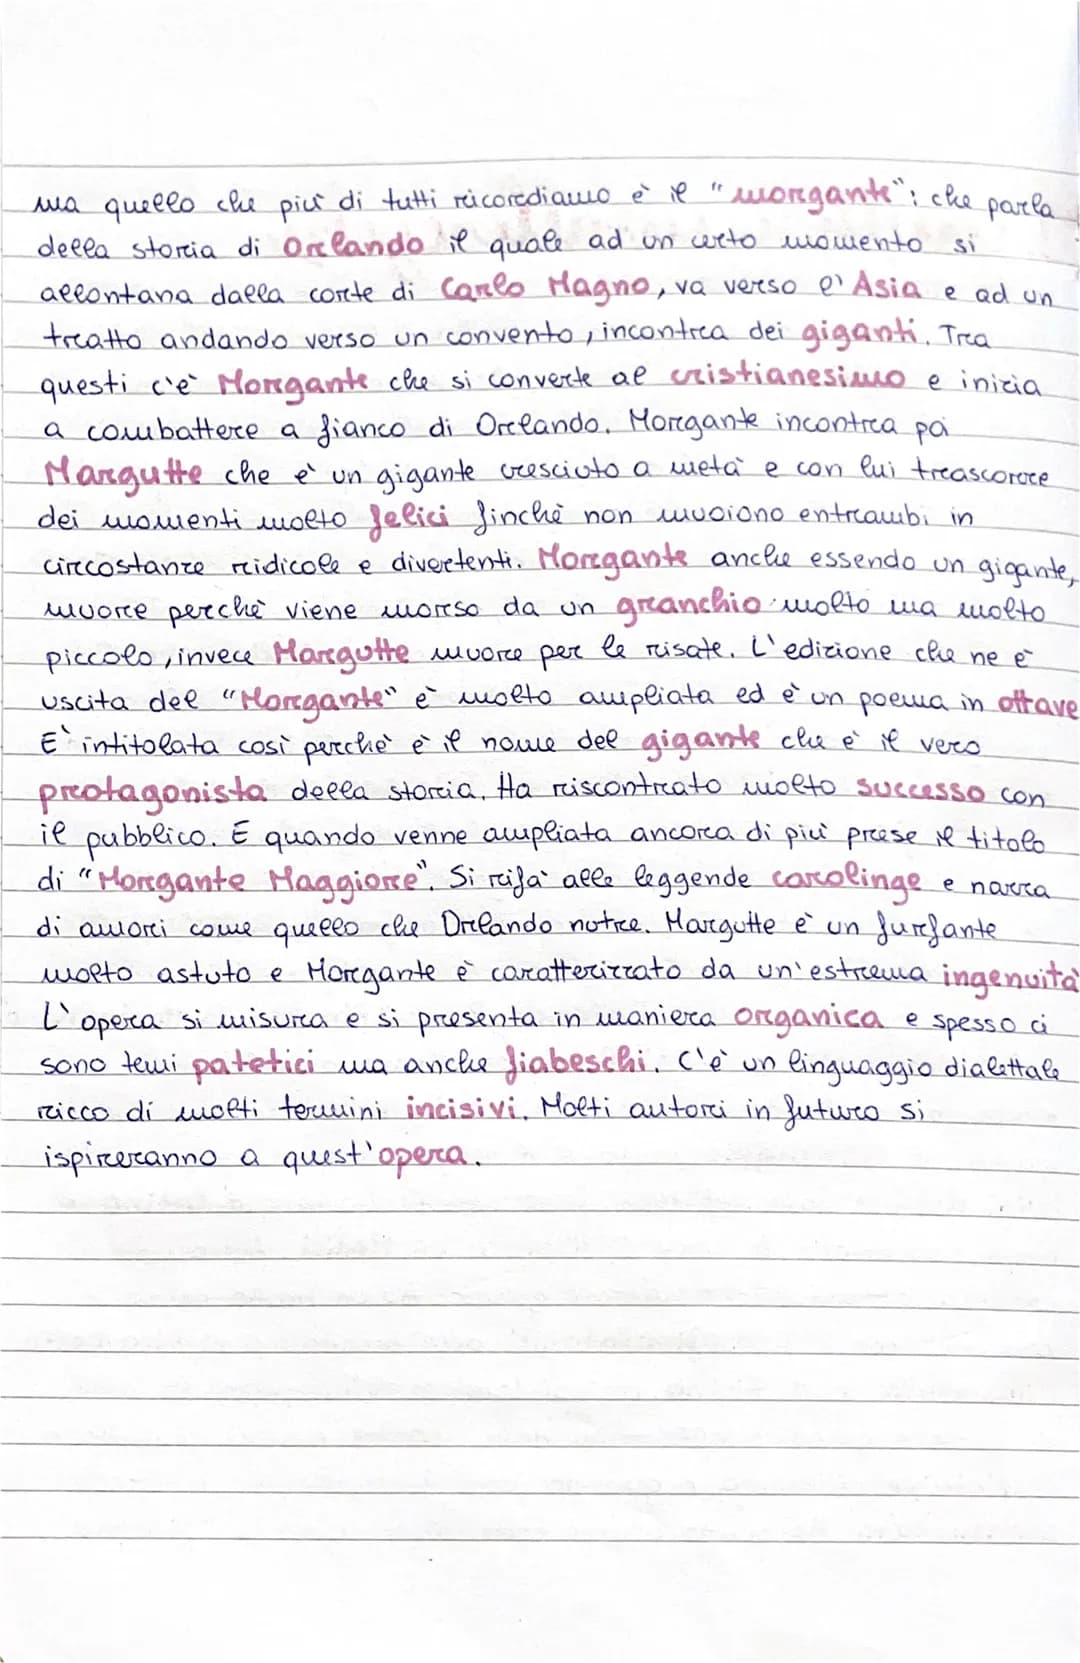 ma quello che più di tutti ricordiamo è il "morgante": che parla
della storia di Orlando il quale ad un certo momento si
allontana dalla corte di Carlo Magno, va verso l'Asia e ad un
tratto andando verso un convento, incontra dei giganti. Tra
questi c'è Morgante che si converte al cristianesimo e inizia
a combattere a fianco di Orlando. Morgante incontra poi
Margutte che è un gigante cresciuto a metà e con lui trascorre
dei momenti molto felici finchè non muoiono entrambi in
circostanze ridicole e divertenti. Morgante anche essendo un gigante,
muore perchè viene morso da un granchio molto ma molto
piccolo, invece Margutte muore per le risate. L'edizione che ne è
uscita del "Morgante" è molto ampliata ed è un poema in ottave
E' intitolata così perchè è il nome del gigante che è il vero
protagonista della storia. Ha riscontrato molto successo con
il pubblico. E quando venne ampliata ancora di più prese il titolo
di "Morgante Maggiore". Si rifà alle leggende carolinge e narra
di amori come quello che Orlando nutre. Margutte è un furfante
molto astuto e Morgante è caratterizzato da un'estrema ingenuità
L'opera si misura e si presenta in maniera organica e spesso ci
sono temi patetici ma anche fiabeschi. C'è un linguaggio dialettale
ricco di molti termini incisivi. Molti autori in futuro si
ispireranno a quest'opera.